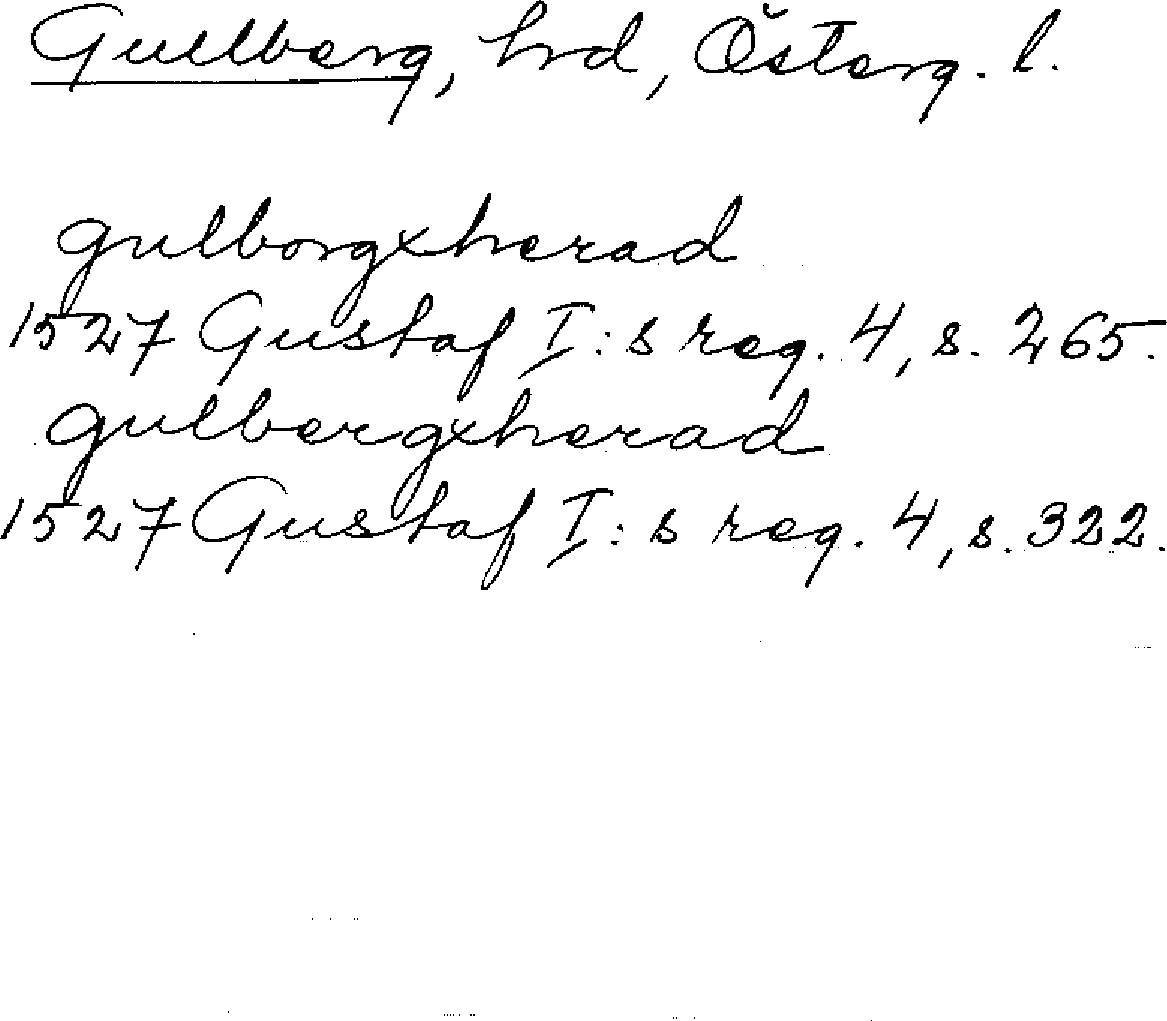 Gullberg, hrd, Österg. l.
gulborgxherad
1527 Gustaf I:s reg. 4, s. 265.
gulbergxherad
1527 Gustaf I:s reg. 4, s. 322.